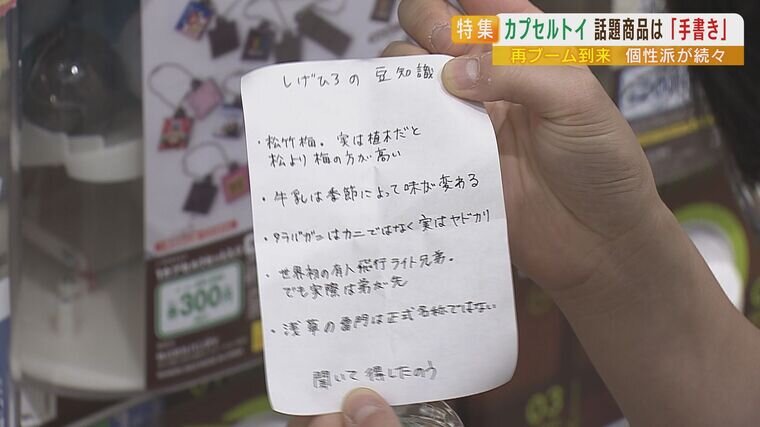 特集 カプセルトイ 話題商品は「手書き」
再ブーム到来 個性派が続々
しげひろの 豆知識
・松竹梅。実は植木だと
松より梅の方が高い
・牛乳は季節によって味が変わる
・タラバガニはカニではなく実はヤドカリ
・世界初の有人飛行ライト兄弟。
でも実際は弟が先
・浅草の雷門は正式名称ではない
聞いて得したのう
300
03